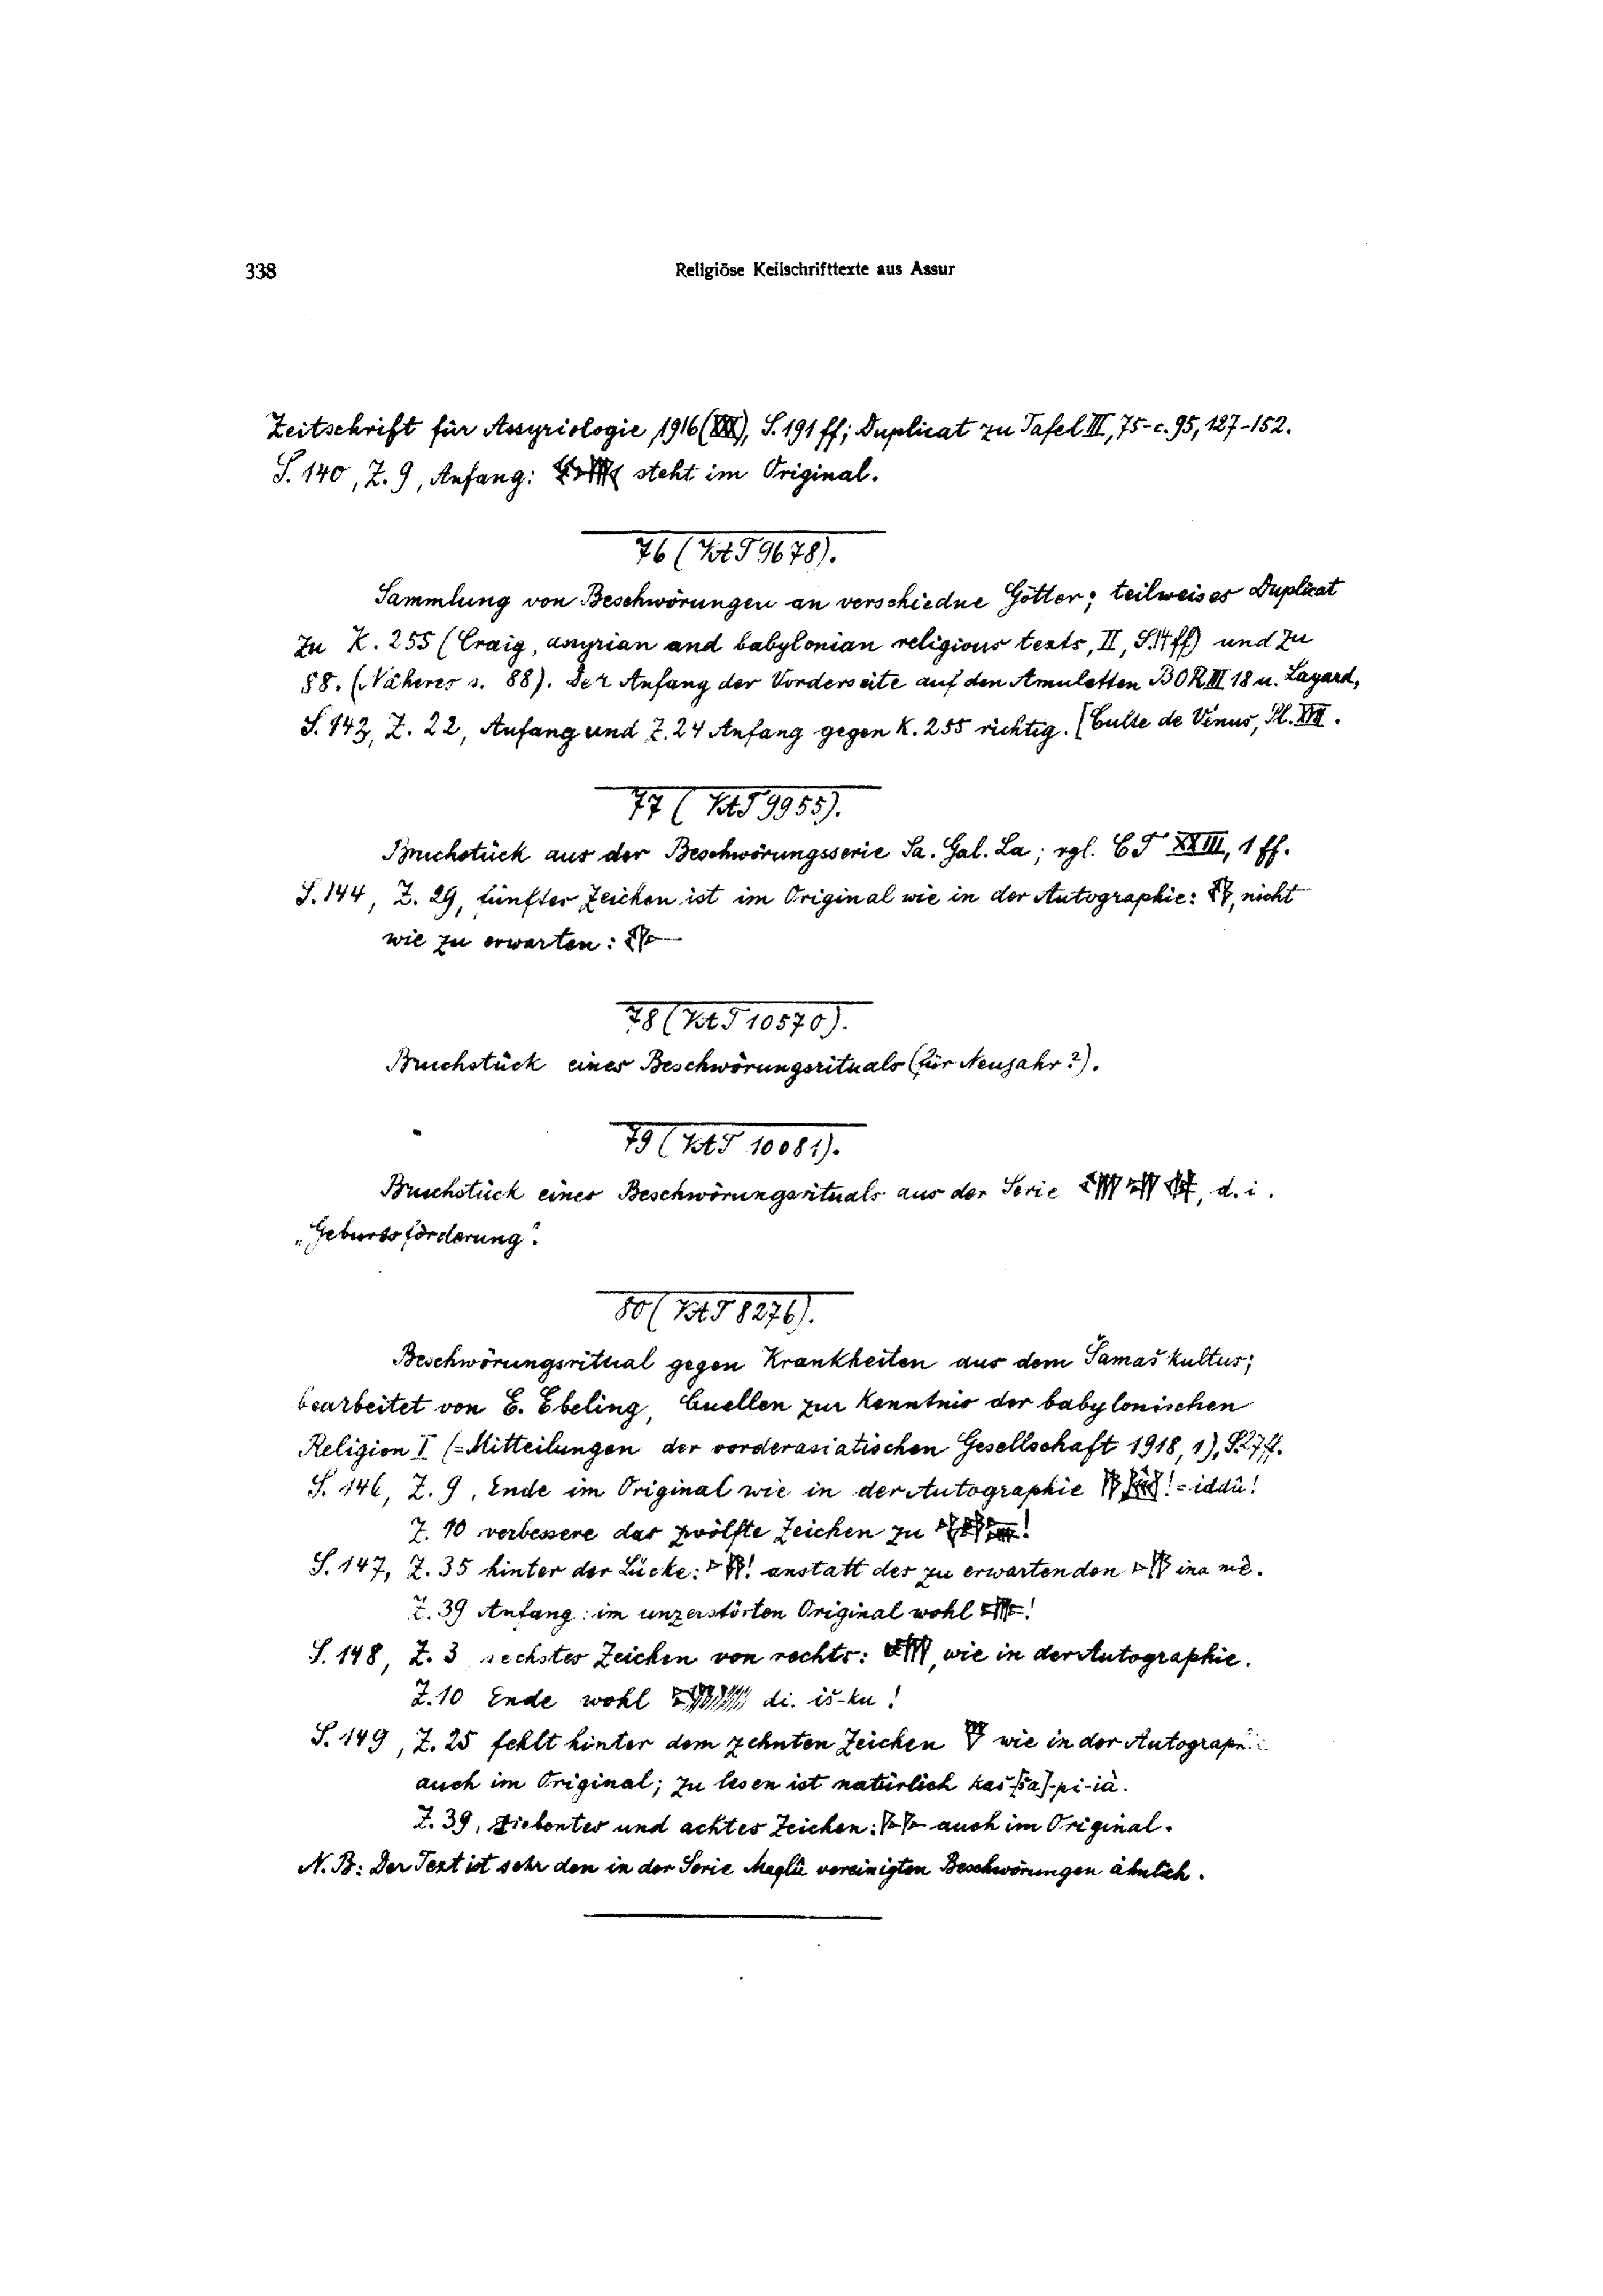 338
Religiöse Keilschrifttexte aus Assur
Zeitschrift für Assyriologie 1916 (XXX), S. 191 ff; Duplicat zu Tafel III, 75-c. 95, 127-152.
S. 140, Z. 9, Anfang: steht im Original.
76 (VAT 9678).
Sammlung von Beschwörungen an verschiedne Götter; teilweises Duplicat
zu K. 255 (Craig, assyrian and babylonian religious texts, II, S. 14 ff) und zu
88. (Näheres s. 88). Der Anfang der Vorderseite auf den Amuletten BOR III 18 u. Layard,
S. 143, Z. 22, Anfang und Z. 24 Anfang gegen K. 255 richtig. [Culte de Vénus, Pl. XVII.
77 (VAT 9955).
Bruchstück aus der Beschwörungsserie Sa. Gal. La; vgl. CT XXIII, 1 ff.
S. 144, Z. 29, fünftes Zeichen ist im Original wie in der Autographie: , nicht
wie zu erwarten:
78 (VAT 10570).
Bruchstück eines Beschwörungsrituals (für Neujahr?).
79 (VAT 10081).
Bruchstück eines Beschwörungsrituals aus der Serie , d. i.
„Geburtsförderung".
80 (VAT 8276).
Beschwörungsritual gegen Krankheiten aus dem Šamaškultus;
bearbeitet von E. Ebeling, Quellen zur Kenntnis der babylonischen
Religion I (=Mitteilungen der vorderasiatischen Gesellschaft 1918, 1), S. 27 ff.
S. 146, Z. 9, Ende im Original wie in der Autographie ! = iddû!
Z. 10 verbessere das zwölfte Zeichen zu !
S. 147, Z. 35 hinter der Lücke: ! anstatt des zu erwartenden ina mê.
Z. 39 Anfang: im unzerstörten Original wohl !
S. 148, Z. 3 sechstes Zeichen von rechts: , wie in der Autographie.
Z. 10 Ende wohl di. iš-ku!
S. 149, Z. 25 fehlt hinter dem zehnten Zeichen wie in der
auch im Original; zu lesen ist natürlich kaš-[ša]-pi-ia.
Z. 39, siebentes und achtes Zeichen: auch im Original.
N. B: Der Text ist sehr den in der Serie Maqlû vereinigten Beschwörungen ähnlich.